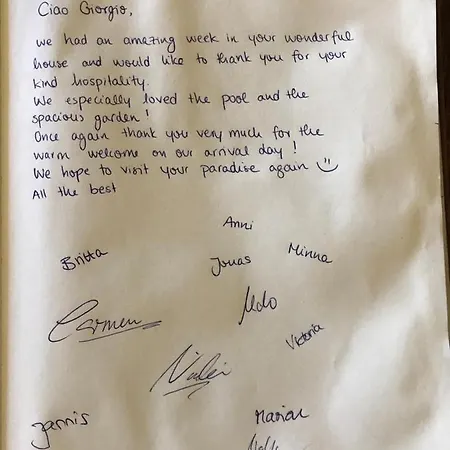 Ciao Giorgio,
we had an amazing week in your wonderful
house and would like to thank you for your
kind hospitality.
We especially loved the pool and the
spacious garden!
Once again thank you very much for the
warm welcome on our arrival day!
We hope to visit your paradise again
All the best
Anni
Britta
Jonas
Minna
Carmen
Udo
Victoria
Jannis